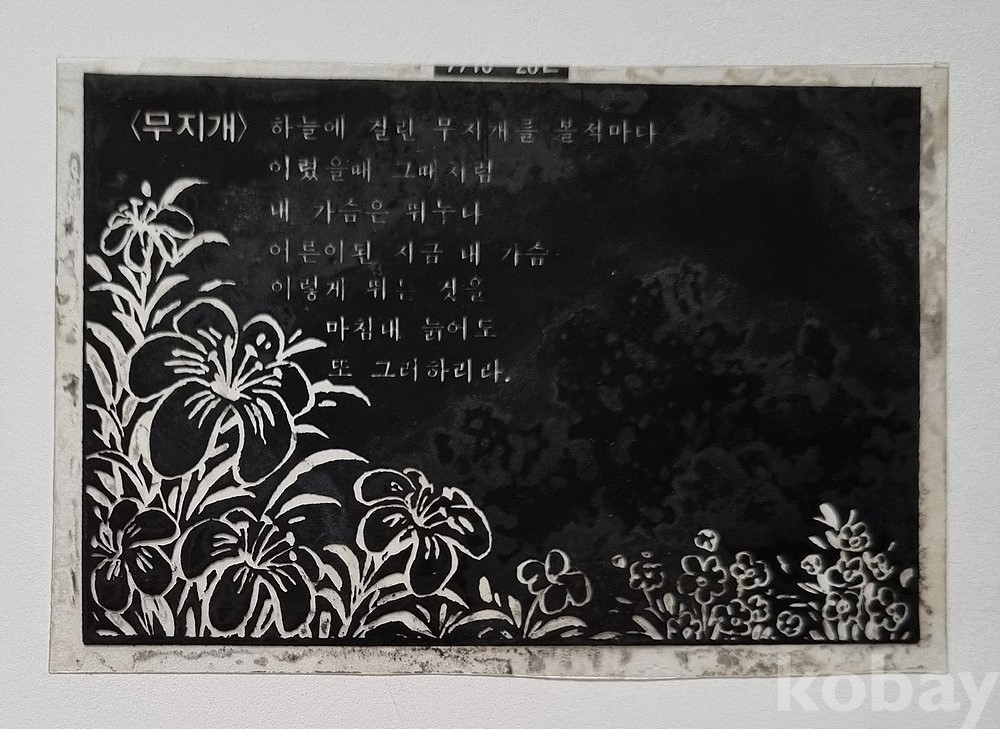 <무지개> 하늘에 걸린 무지개를 볼적마다
이렸을때 그때처럼
내 가슴은 뛰누나
어른이된 지금 내 가슴
이렇게 뛰는 것을
마침내 늙어도
또 그러하리라.
kobay